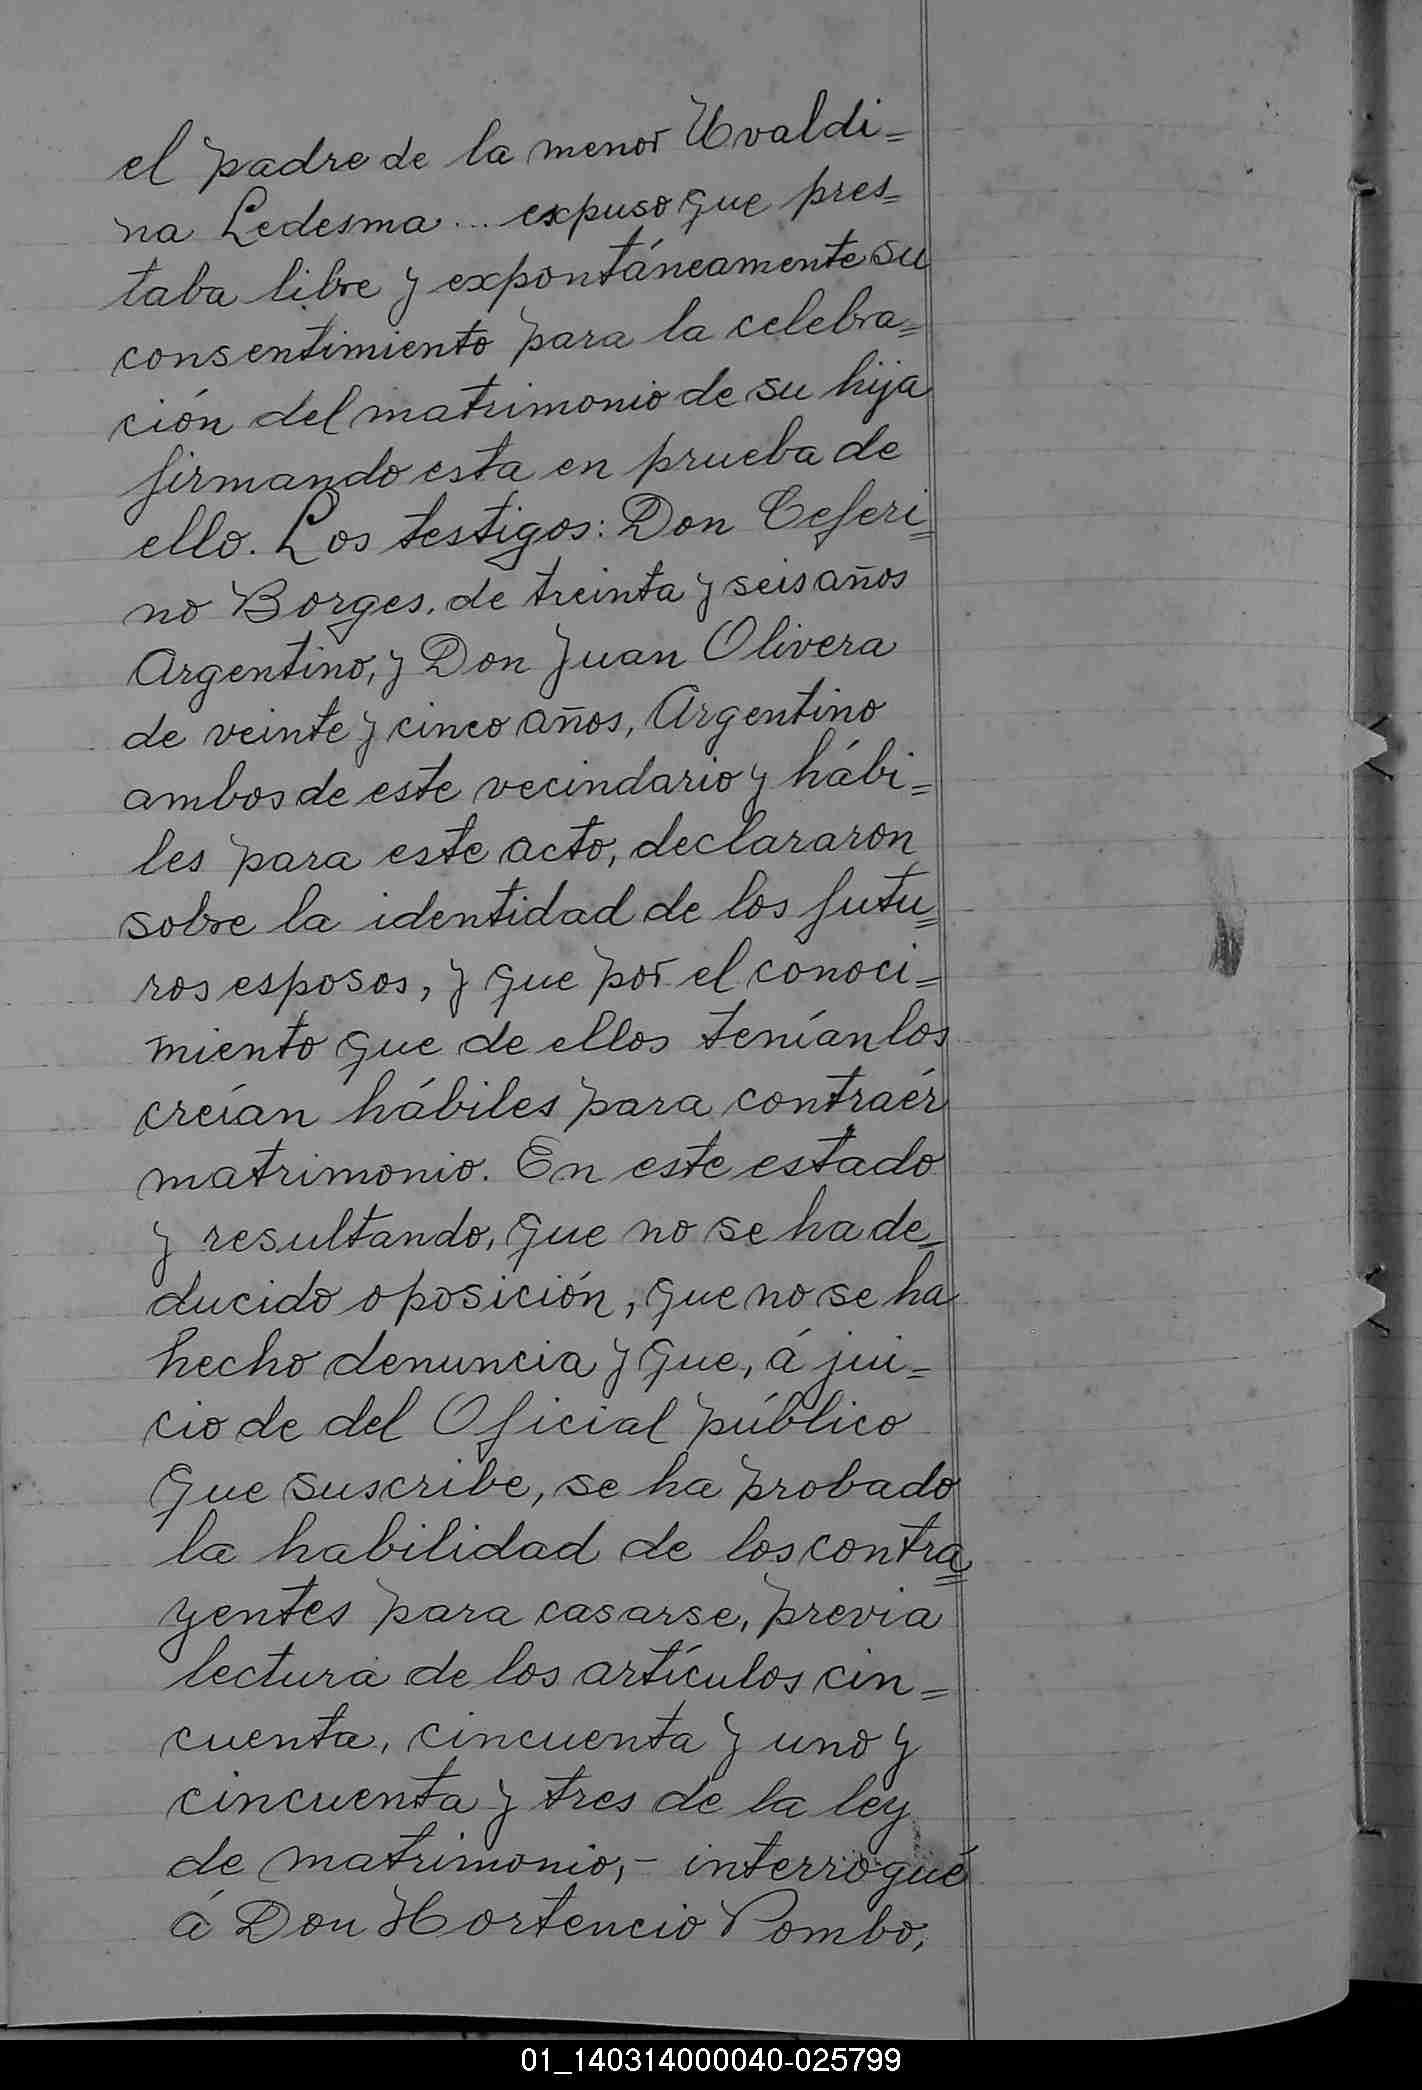 el padre de la menor Uvaldi=
na Ledesma... expuso que pres=
taba libre y expontáneamente su
consentimiento para la celebra=
ción del matrimonio de su hija
firmando esta en prueba de
ello. Los testigos: Don Ceferi=
no Borges, de treinta y seis años
Argentino, y Don Juan Olivera
de veinte y cinco años, Argentino
ambos de este vecindario y hábi=
les para este acto, declararon
sobre la identidad de los futu=
ros esposos, y que por el conoci=
miento que de ellos tenían los
creían hábiles para contraér
matrimonio. En este estado
y resultando, que no se ha de=
ducido oposición, que no se ha
hecho denuncia y que, á jui=
cio de del Oficial público
que suscribe, se ha probado
la habilidad de los contra=
yentes para casarse, previa
lectura de los artículos cin=
cuenta, cincuenta y uno y
cincuenta y tres de la ley
de matrimonio,- interrogué
á Don Hortencio Pombo,
01_140314000040-025799